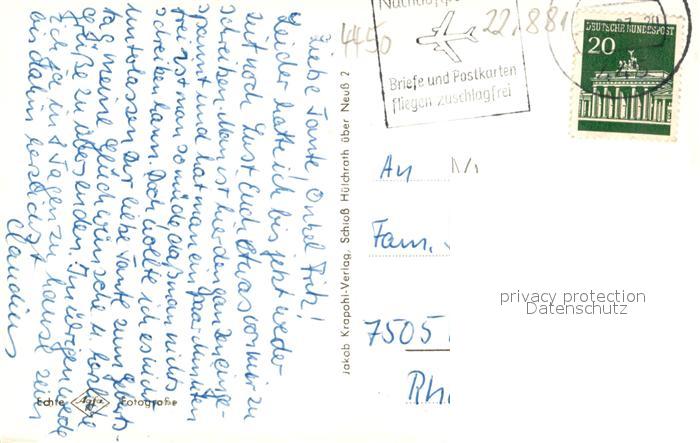 Liebe Tante, Onkel Fritz!
Leider hatte ich bis jetzt weder
Zeit noch Lust Euch etwas von mir zu
schreiben. Man ist hier den ganzen einge-
spannt und hat man ein paar Minuten
frei ist man so müde daß man nichts
schreiben kann. Doch wollte ich es nicht
unterlassen Dir liebe Tante zum Geburts-
tag meine Glückwünsche u. herzliche
Grüße zu übersenden. Im übrigen werde
ich ja in 8 Tagen zu hause sein
bis dahin herzlichst
Claudius
Echte Agfa Fotografie
Jakob Krapohl-Verlag, Schloß Hülchrath über Neuß 2
4450
22.881
Nachtluftpost
Briefe und Postkarten
fliegen zuschlagfrei
DEUTSCHE BUNDESPOST
20
An
Fam.
7505
Rh
privacy protection
Datenschutz